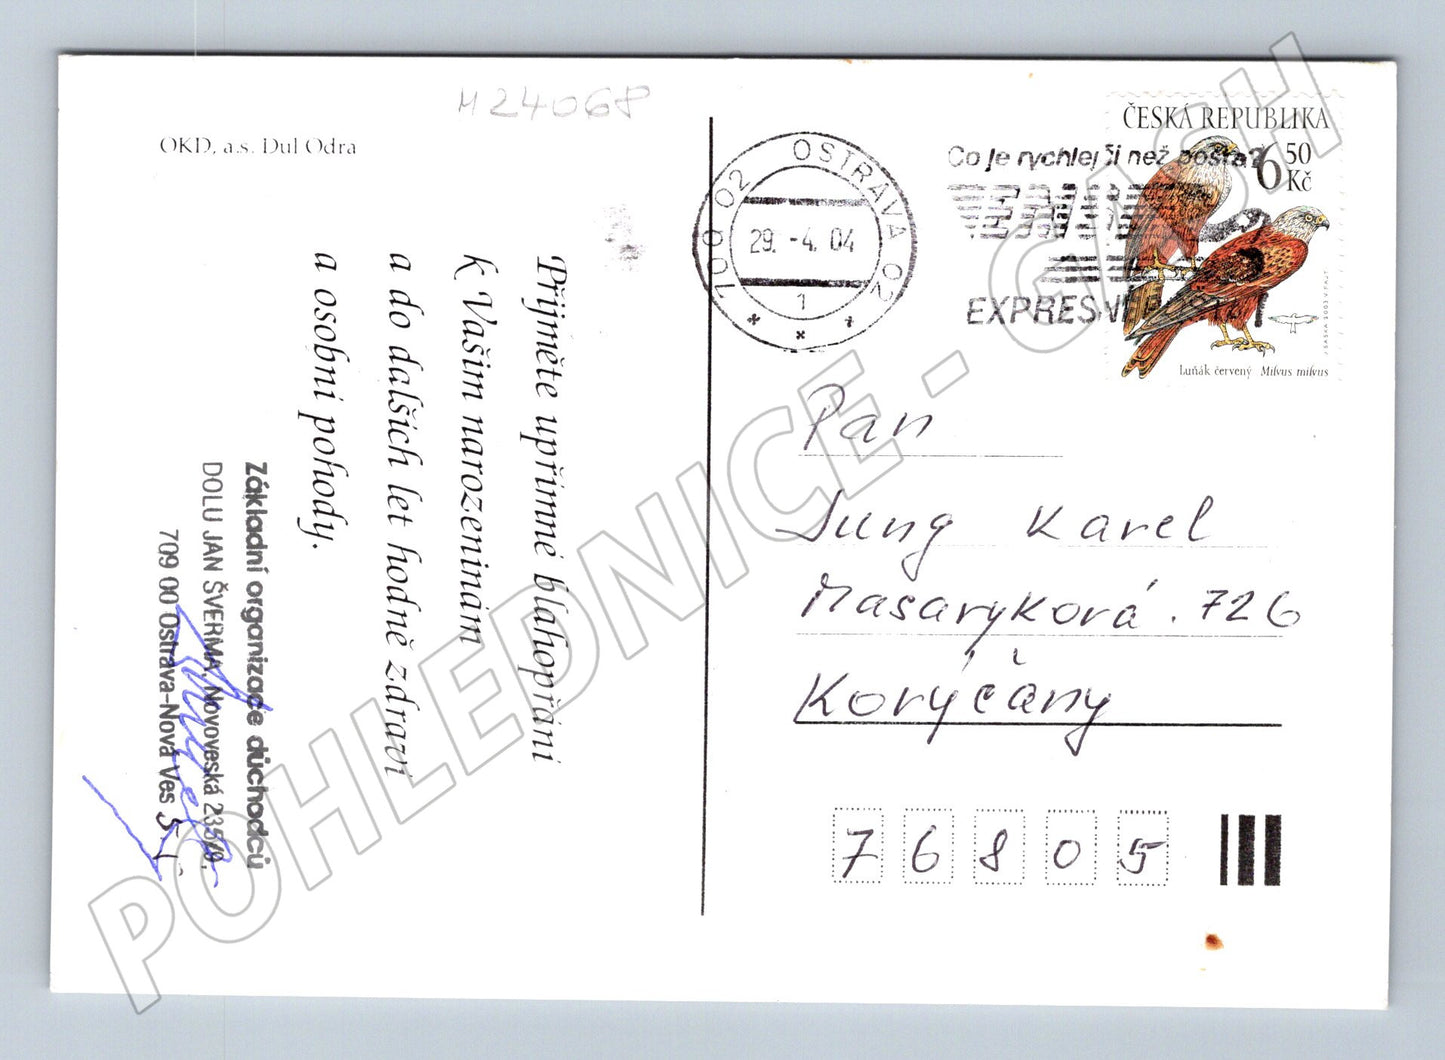 M24068
OKD, a.s. Dul Odra
Přijměte upřímné blahopřání
k Vašim narozeninám
a do dalších let hodně zdraví
a osobní pohody.
Základní organizace důchodců
DOLU JAN ŠVERMA, Novoveská 235/9,
709 00 Ostrava-Nová Ves
700 02 OSTRAVA 02
29. -4. 04
1
Co je rychlejší než pošta?
EMS
EXPRESNÍ
ČESKÁ REPUBLIKA
6 50
Kč
Luňák červený Milvus milvus
Pan
Jung Karel
Masaryková. 726
Koryčány
76805
POHLEDNICE - GASH